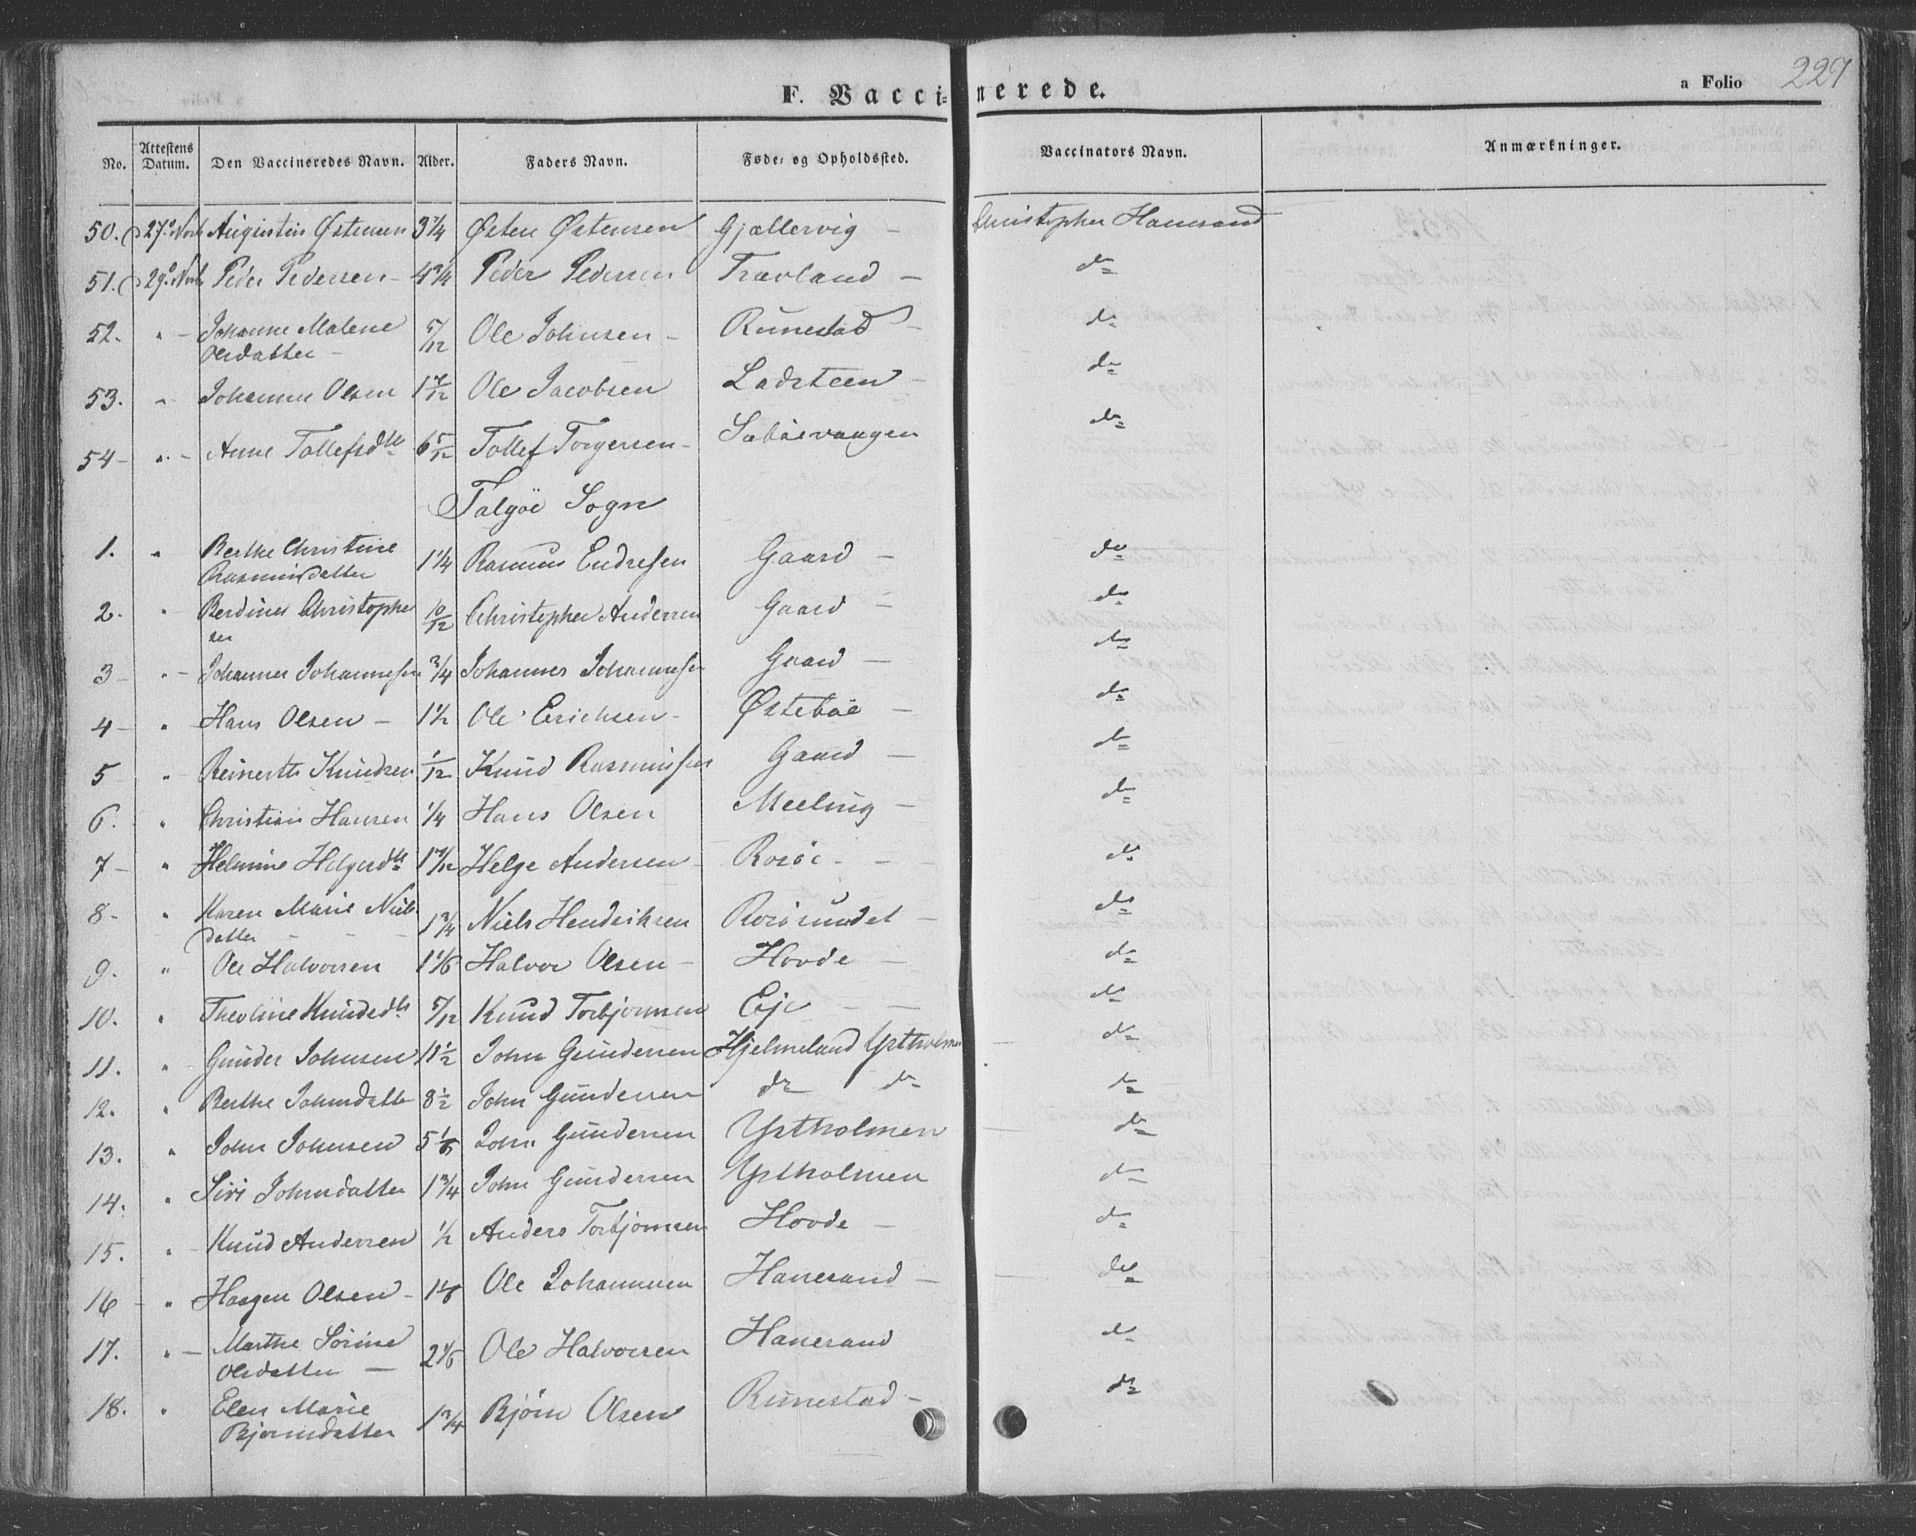 F. Vaccinerede.
a Folio 227
No. Attestens Datum. Den Vaccineredes Navn. Alder. Faders Navn. Føde- og Opholdssted. Vaccinators Navn. Anmærkninger.
50. 27de Novb Augustin Østensen 3 3/4 Østen Østensen Gjællervig – Christopher Hanesand
51. 29de Novb Peder Pedersen – 4 3/4 Peder Pedersen Travland – do
52. " – Johanne Malene 5/12 Ole Johnsen – Runestad – do
Olsdatter –
53. " Johannes Olsen 1 7/12 Ole Jacobsen Ladsteen – do
54 – " – Anne Tollefsdtr 6 5/12 Tollef Torgersen – Sabøevaagen do
Talgöe Sogn
1. " Berthe Christine 1 1/4 Rasmus Endresen Gaard – do
Rasmusdatter
2. " Berdines Christopher 10/12 Christopher Andersen Gaard – do
sen
3 – " – Johannes Johannesen 3/4 Johannes Johannesen Gaard – do
4 – " Hans Olsen – 1 1/2 Ole Erichsen – Østebøe – do
5 " Reinerth Knudsen 1/12 Knud Rasmussen Gaard – do
6. " Christian Hansen 1/4 Hans Olsen Meeling – do
7 – " Helmine Helgesdtr 1 7/12 Helge Andersen – Rosöe – – do
8 – " Karen Marie Niels 1 3/4 Niels Hendriksen Rosösundet – do
datter – – –
9. " Ole Halvorsen 1 1/6 Halvor Olsen – Hovde – do
10. " Theoline Knudsdtr 5/12 Knud Torbjornsen Eje – – do
11. " Gunder Johnsen 11 1/2 John Gundersen Hjelmeland Ystholmen – do
12. " Berthe Johnsdatter 8 1/2 John Gundersen do do do
13. " John Johnsen 5 1/6 John Gundersen Ystholmen – do
14. " Siri Johnsdatter 1 3/4 John Gundersen Ystholmen do
15. " Knud Andersen 1/2 Anders Torbjornsen Hovde – do
16 – " Haagen Olsen – 1 1/6 Ole Johannesen Hanesand – – do
17. " – Marthe Sörine 2 1/6 Ole Halvorsen Hanesand do
Olsdatter –
18. " Elen Marie 1 3/4 Bjørn Olsen Runestad – do
Bjornsdatter